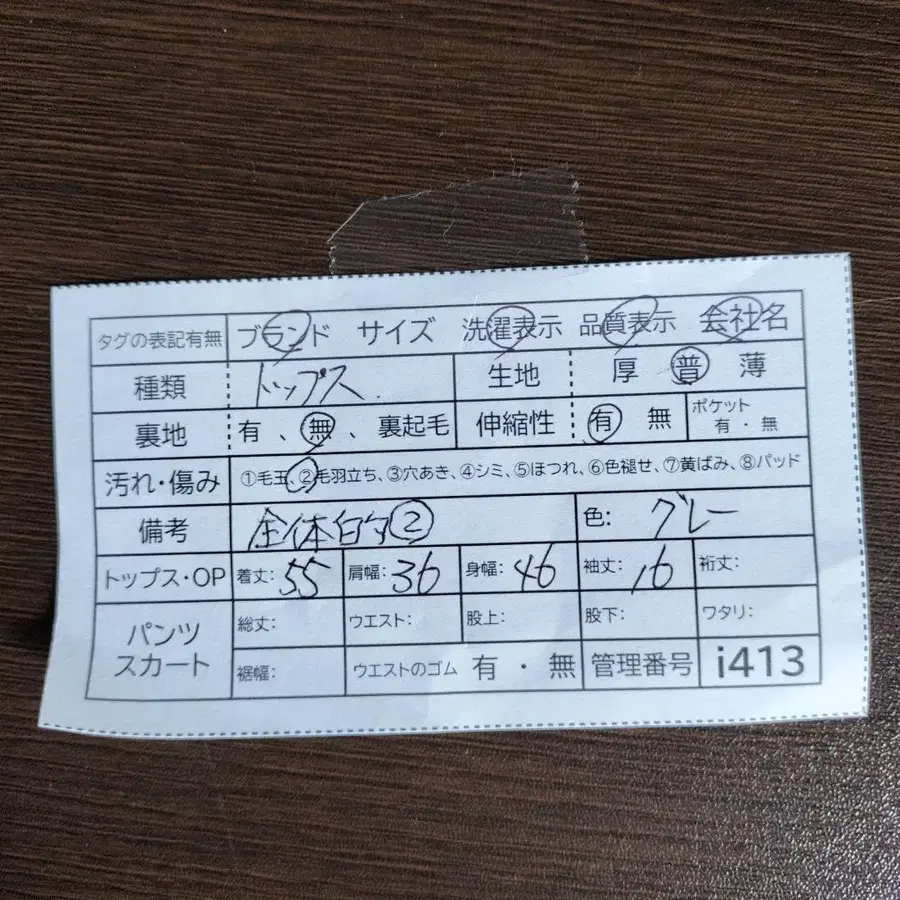 タグの表記有無 ブランド サイズ 洗濯表示 品質表示 会社名
種類 トップス 生地 厚 普 薄
裏地 有、無、裏起毛 伸縮性 有 無 ポケット 有・無
汚れ・傷み ①毛玉、②毛羽立ち、③穴あき、④シミ、⑤ほつれ、⑥色褪せ、⑦黄ばみ、⑧パッド
備考 全体的② 色: グレー
トップス・OP 着丈: 55 肩幅: 36 身幅: 46 袖丈: 16 裄丈:
パンツ スカート 総丈: ウエスト: 股上: 股下: ワタリ:
裾幅: ウエストのゴム 有・無 管理番号 i413